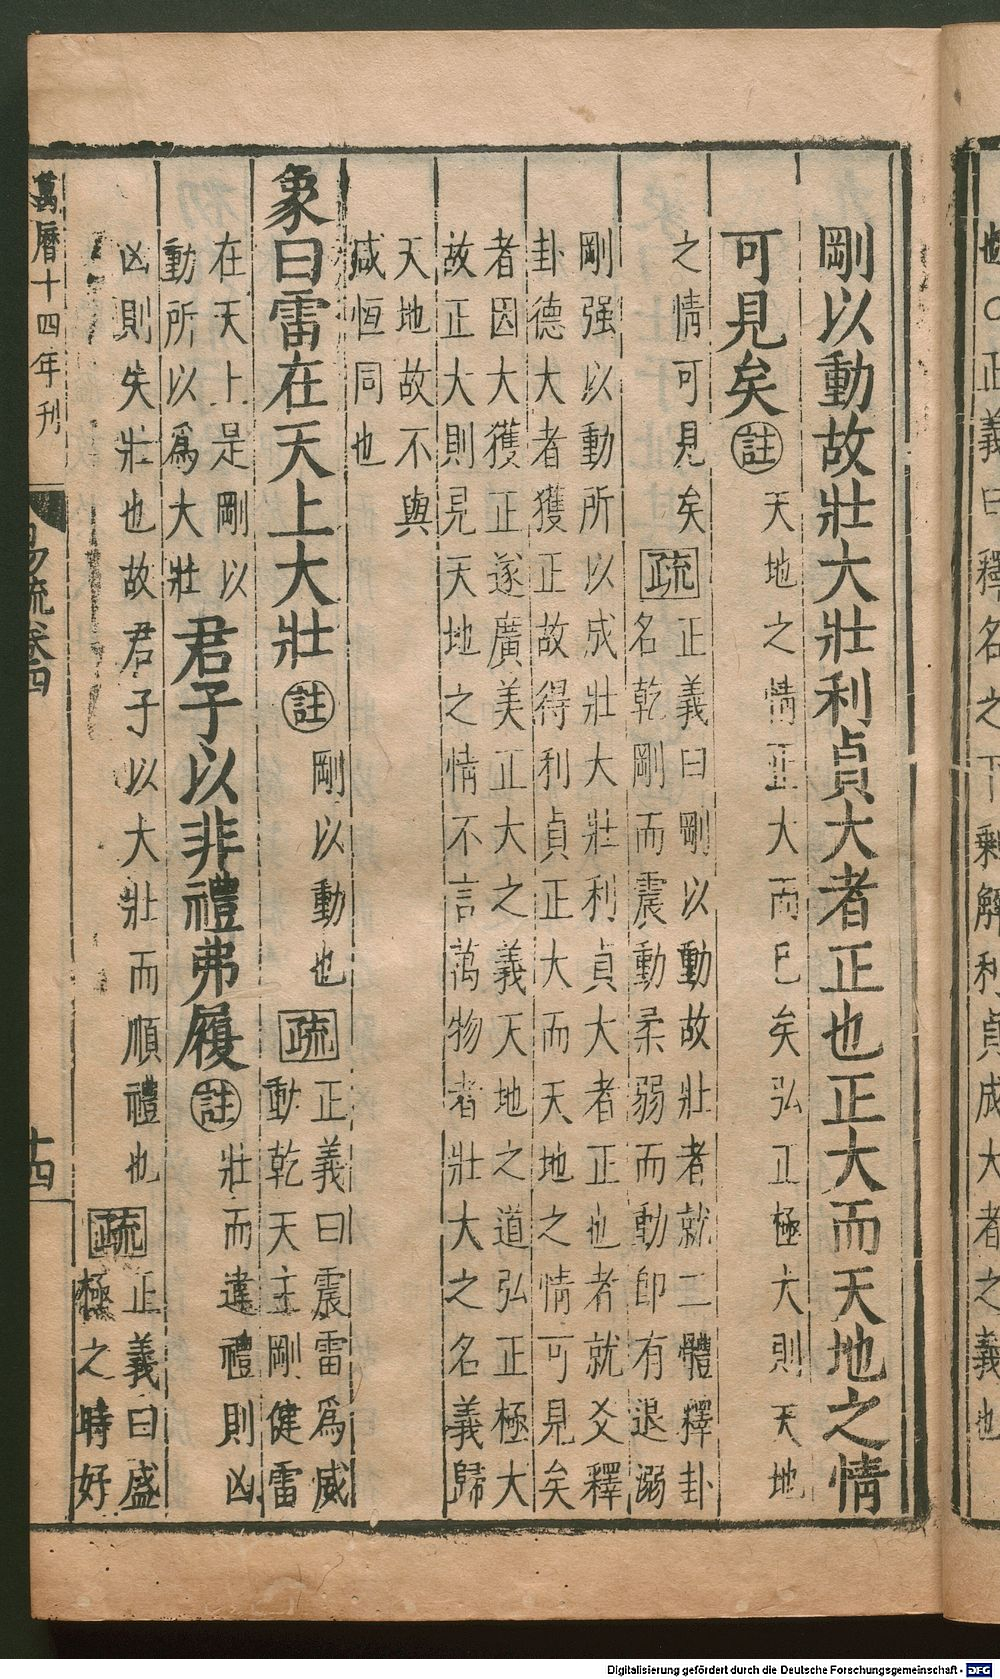 也○正義曰釋名之下剩解利貞成大者之義也
剛以動故壯大壯利貞大者正也正大而天地之情
可見矣
註
天地之情正大而已矣弘正極大則天地
之情可見矣
疏
正義曰剛以動故壯者就二體釋卦
名乾剛而震動柔弱而動即有退溺
剛强以動所以成壯大壯利貞大者正也者就爻釋
卦德大者獲正故得利貞正大而天地之情可見矣
者因大獲正遂廣美正大之義天地之道弘正極大
故正大則見天地之情不言萬物者壯大之名義歸
天地故不與
咸恒同也
象曰雷在天上大壯
註
剛以動也
疏
正義曰震雷爲威
動乾天主剛健雷
在天上是剛以
動所以爲大壯
君子以非禮弗履
註
壯而違禮則凶
凶則失壯也故君子以大壯而順禮也
疏
正義曰盛
極之時好
萬曆十四年刊
易疏卷四
十四
Digitalisierung gefördert durch die Deutsche Forschungsgemeinschaft - DFG